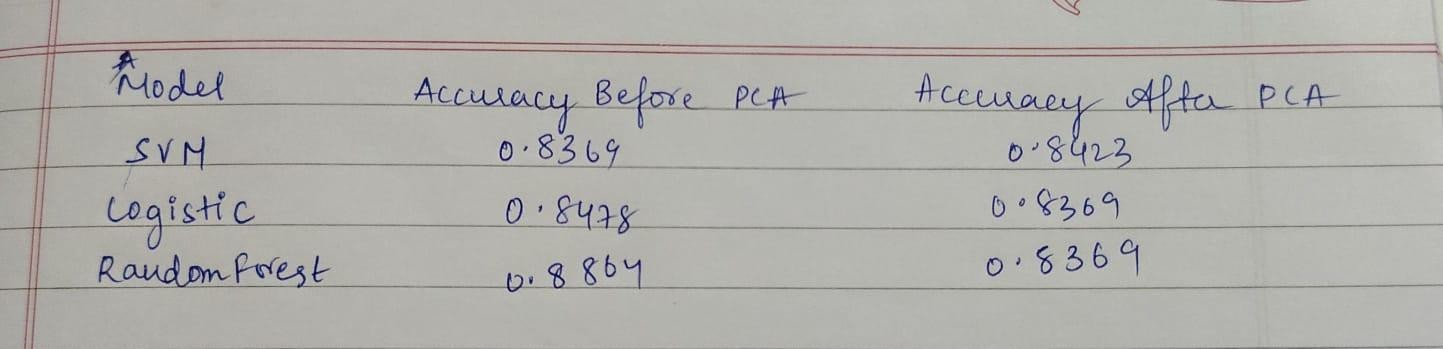 Model Accuracy Before PCA Accuracy After PCA
SVM 0.8369 0.8423
Logistic 0.8478 0.8369
RandomForest 0.8864 0.8369